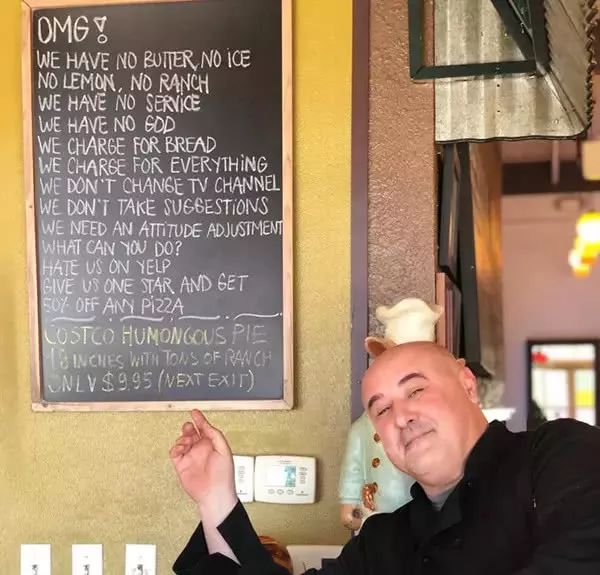 OMG!
WE HAVE NO BUTTER, NO ICE
NO LEMON, NO RANCH
WE HAVE NO SERVICE
WE HAVE NO GOD
WE CHARGE FOR BREAD
WE CHARGE FOR EVERYTHING
WE DON'T CHANGE TV CHANNEL
WE DON'T TAKE SUGGESTIONS
WE NEED AN ATTITUDE ADJUSTMENT
WHAT CAN YOU DO?
HATE US ON YELP
GIVE US ONE STAR AND GET
50% OFF ANY PIZZA
COSTCO HUMONGOUS PIE
18 INCHES WITH TONS OF RANCH
ONLY $9.95 (NEXT EXIT)